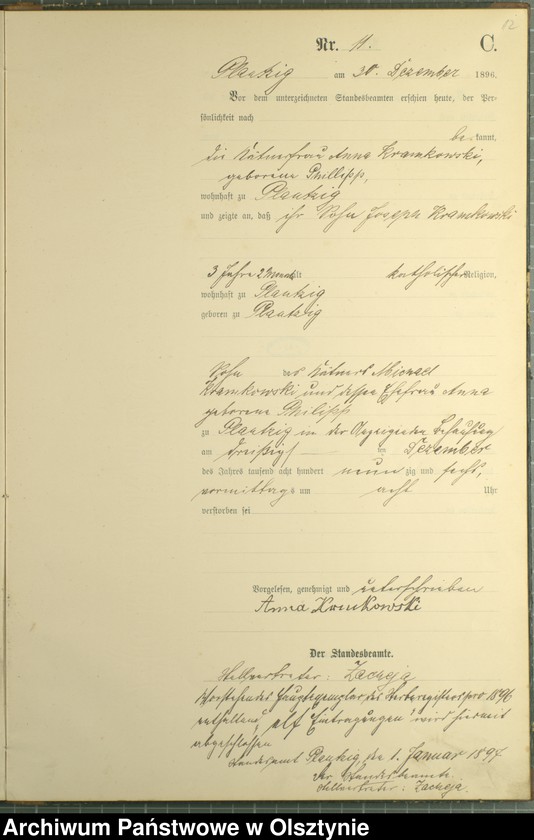 82
Nr. 11. C.
Plautzig am 30. Dezember 1896.
Vor dem unterzeichneten Standesbeamten erschien heute, der Per-
sönlichkeit nach
be kannt,
die Kätnerfrau Anna Kramkowski,
geborene Phillipp,
wohnhaft zu Plautzig
und zeigte an, daß ihr Sohn Joseph Kramkowski
3 Jahre 2 Monat alt katholischer Religion,
wohnhaft zu Plautzig
geboren zu Plautzig
Sohn des Kätners Michael
Kramkowski und dessen Ehefrau Anna
geborene Philipp
zu Plautzig in der Behausung
am dreißigst ten Dezember
des Jahres tausend acht hundert neun zig und sechs,
vormittags um acht Uhr
verstorben sei
Vorgelesen, genehmigt und unterschrieben
Anna Kramkowski
Der Standesbeamte.
Stellvertreter: Zacheja
Vorstehendes Hauptexemplar des Sterberegisters pro 1896
enthaltend elf Eintragungen wird hiermit
abgeschlossen
Standesamt Plautzig, den 1. Januar 1897
Der Standesbeamte.
Stellvertreter: Zacheja.
Archiwum Państwowe w Olsztynie